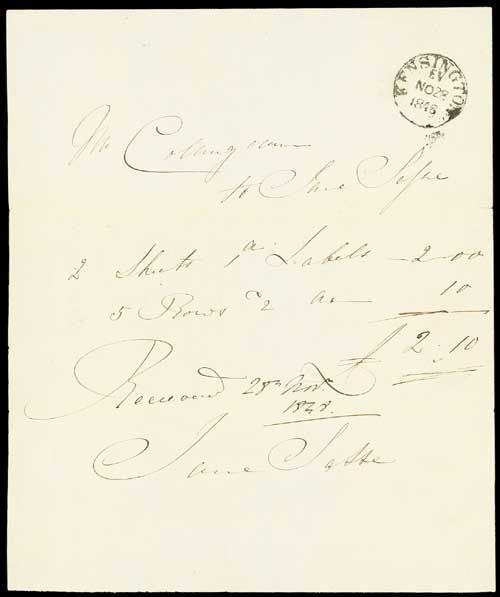 KENSINGTON
EV
NO 28
1848
Mr Collingwood
to Jane
2 Sheets 1d Labels 2-00
5 Rows 2 10
£ 2:10
Received 28th Novr.
1848.
Jane